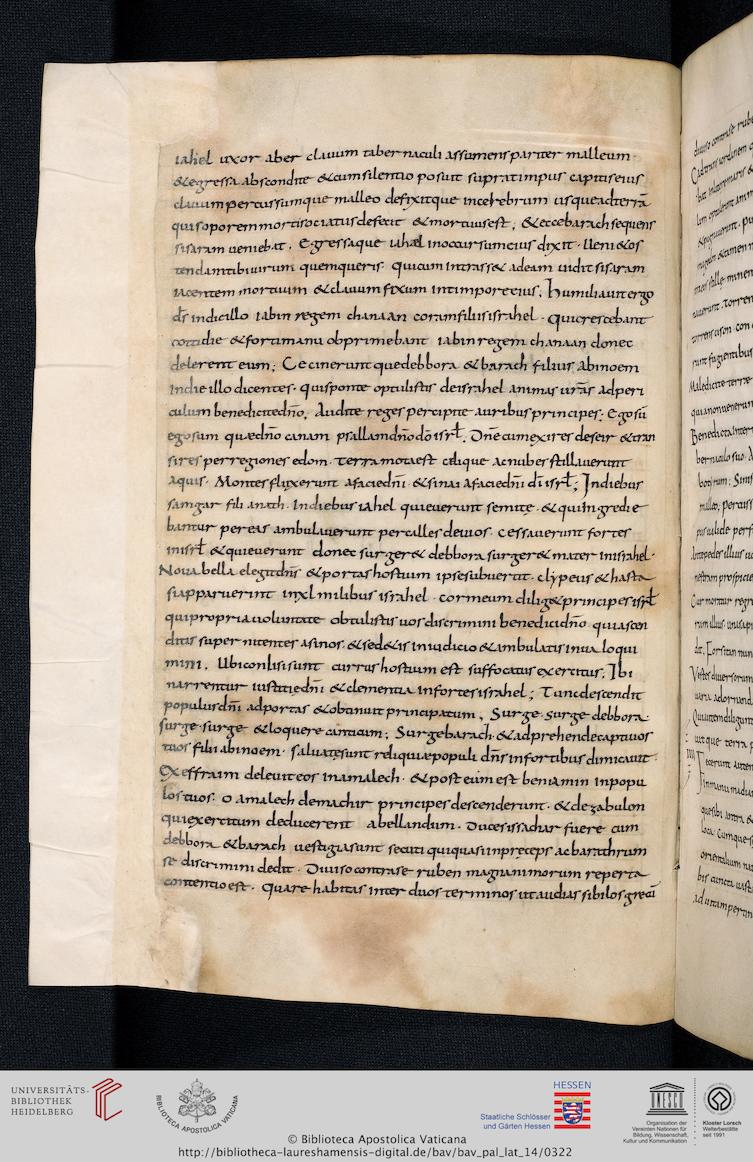 iahel uxor aber clauum tabernaculi assumens pariter malleum
& egressa abscondite & cum silentio posuit supra timpus capitis eius
clauum percussumque malleo defixit que in cerebrum usque ad terrā
qui soporem morti sociatus defecit & mortuus est; & ecce barach sequens
sisaram ueniebat. Egressaque iahel in occursum eius dixit. Ueni & os
tendam tibi uirum quem queris. Qui cum intrass& ad eam uidit sisaram
iacentem mortuum & clauum fixum in timpore eius; Humiliauit ergo
d̄s in die illo iabin regem chanaan coram filiis israhel. Qui crescebant
cottidie & forti manu obprimebant iabin regem chanaan donec
delerent eum; Cecinerunt que debbora & barach filius abinoem
in die illo dicentes. qui sponte optulistis de israhel animas ur̄as ad peri
culum benedicite dn̄o. Audite reges percipite auribus principes; Ego sū
ego sum quę dn̄o canam psallam dn̄o dō isrł. Dn̄e cum exires de seir & tran
sires per regiones edom. terra mota est cęlique ac nubes stillauerunt
aquis. Montes fluxerunt a facie dn̄i. & sinai a facie dn̄i dī isrł; In diebus
samgar fili anath. In diebus iahel quieuerunt semitę. & qui ingredie
bantur per eas ambulauerunt per calles deuios. cessauerunt fortes
in isrł & quieuerunt donec surger& debbora surger& mater in israhel.
Noua bella elegit dn̄s & portas hostium ipse subuertit. clypeus & hasta
si apparuerint in xl milibus israhel. cor meum dilig& principes isrł
qui propria uoluntate obtulistis uos discrimini benedici dn̄o. qui ascen
ditis super nitentes asinos. & sed&is in iudicio & ambulatis in uia loqui
mini. Ubi conlisi sunt currus hostium est suffocatus exercitus. Ibi
narrentur iustitię dn̄i & clementia in fortes israhel; Tunc descendit
populus dn̄i ad portas & obtinuit principatum. Surge. surge debbora.
surge. surge & loquere canticum; Surge barach. & adprehende captiuos
tuos fili abinoem. saluatę sunt reliquię populi dn̄s in fortibus dimicauit.
Ex effraim deleuit eos in amalech. & post eum est beniamin in popu
los tuos. o amalech de machir principes descenderunt. & de zabulon
qui exercitum deducerent ad bellandum. Duces issachar fuere cum
debbora & barach uestigia sunt secuti qui quasi in pręceps ac barathrum
se discrimini dedit. Diuiso contra se ruben magnanimorum reperta
contentio est. Quare habitas inter duos terminos ut audias sibilos gregū
UNIVERSITÄTS-
BIBLIOTHEK
HEIDELBERG
BIBLIOTECA APOSTOLICA VATICANA
HESSEN
Staatliche Schlösser
und Gärten Hessen
UNESCO
Organisation der
Vereinten Nationen für
Bildung, Wissenschaft,
Kultur und Kommunikation
Kloster Lorsch
Welterbestätte
seit 1991
© Biblioteca Apostolica Vaticana
http://bibliotheca-laureshamensis-digital.de/bav/bav_pal_lat_14/0322